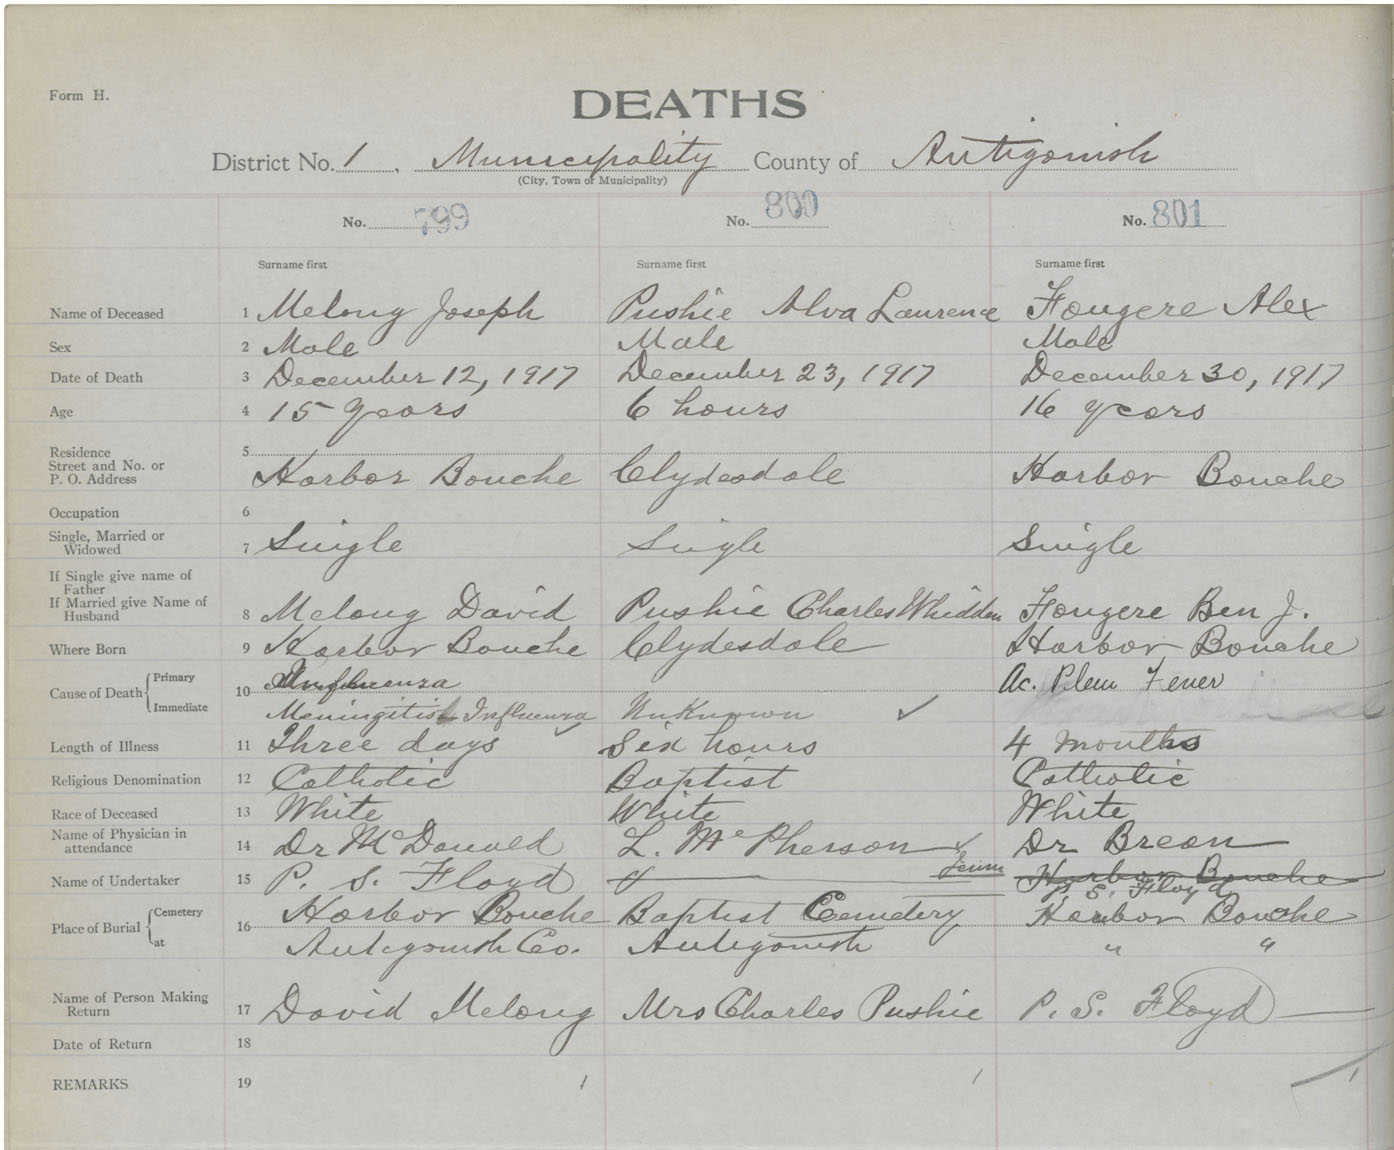 Form H.
DEATHS
District No. 1. Municipality County of Antigonish
(City, Town or Municipality)
No. 799 No. 800 No. 801
Surname first Surname first Surname first
Name of Deceased 1 Melong Joseph Pushie Alva Laurence Fougere Alex
Sex 2 Male Male Male
Date of Death 3 December 12, 1917 December 23, 1917 December 30, 1917
Age 4 15 years 6 hours 16 years
Residence 5
Street and No. or
P. O. Address Harbor Bouche Clydesdale Harbor Bouche
Occupation 6
Single, Married or
Widowed 7 Single Single Single
If Single give name of
Father
If Married give Name of
Husband 8 Melong David Pushie Charles Whidden Fougere Ben J.
Where Born 9 Harbor Bouche Clydesdale Harbor Bouche
Cause of Death Primary 10 Influenza Ac. Fever
Immediate Meningitis Influenza Unknown
Length of Illness 11 Three days Six hours 4 months
Religious Denomination 12 Catholic Baptist Catholic
Race of Deceased 13 White White White
Name of Physician in
attendance 14 Dr McDonald L. McPherson Dr Brean
Name of Undertaker 15 P. S. Floyd Harbor Bouche
P. S. Floyd
Place of Burial Cemetery 16 Harbor Bouche Baptist Cemetery Harbor Bouche
at Antigonish Co. Antigonish " "
Name of Person Making
Return 17 David Melong Mrs Charles Pushie P. S. Floyd
Date of Return 18
REMARKS 19